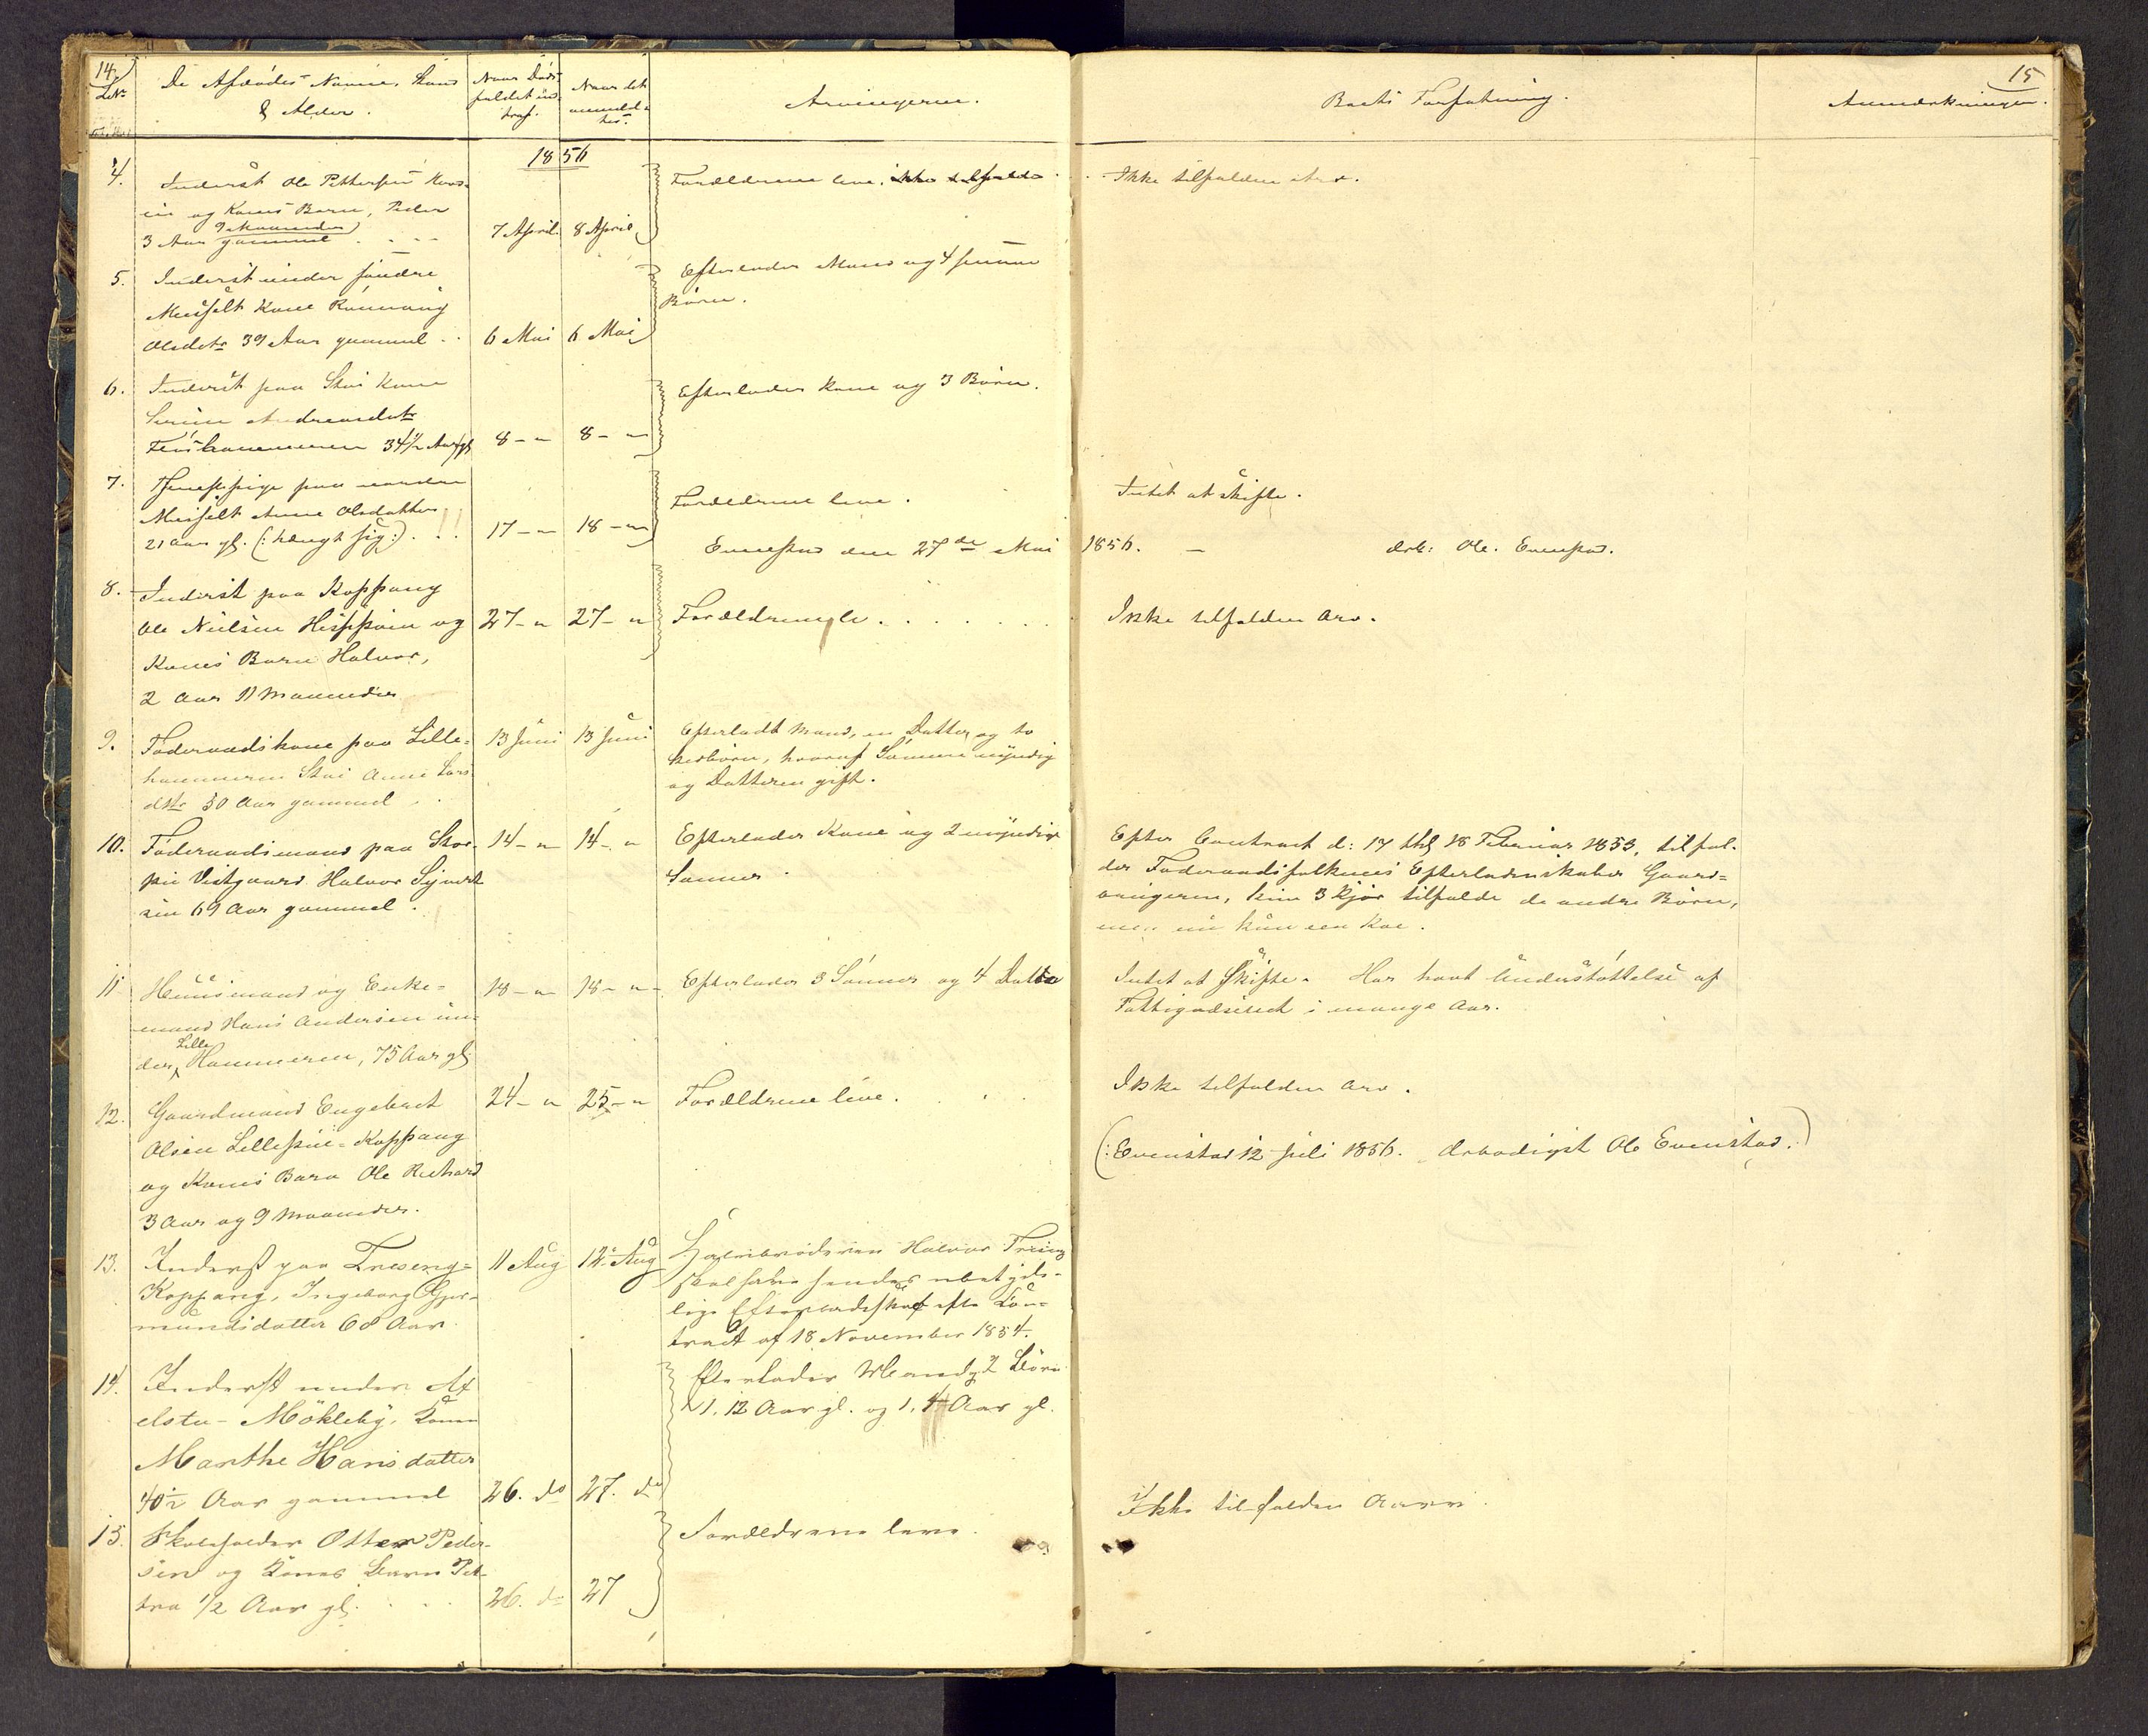 14
LNo De Afdødes Navne, Stand
& Alder.
Naar Døds-
faldet ind-
traf.
Naar det
anmeld-
tes.
Arvingerne.
Boets Forfatning.
Anmærkninger.
15
1856
4. Inderst Ole Pettersen
og Kones Barn, Peder
3 Aar 9 Maaneder gammel
7 April 8 April
Forældrene leve. ikke tilfalde
Ikke tilfalden Arv.
5. Inderst under søndre
Messelt Kone Rønnaug
Olsdtr 39 Aar gammel
6 Mai 6 Mai
Efterlader Mand og 4 smaae
Børn.
6. Inderst paa Stai Kone
Andreasdtr
34 1/2 Aar gl
8 - " 8 - "
Efterlader Kone og 3 Børn.
7. Tjenestepige paa nordre
Messelt Anne Olsdatter
21 Aar gl. (: hengt sig :) . . !!
17 - " 18 - "
Forældrene leve.
Intet at skifte.
Evenstad den 27de Mai 1856. - ærb: Ole Evenstad.
8. Inderst paa Koppang
Ole Nielsen og
Kones Barn Halvor,
2 Aar 11 Maaneder
27 - " 27 - "
Forældrene le . . . . . .
Ikke tilfalden Arv.
9. Føderaadskone paa Lille-
hammeren Stai Anne Lars
dtr 50 Aar gammel
13 Juni 13 Juni
Efterladt Mand, en Datter og to
, hvoraf Sønnen myndig
og Datteren gift.
10. Føderaadsmand paa Stor-
Vestgaard Halvor Syvert
sen 69 Aar gammel.
14 - " 14 - "
Efterlader Kone og 2 myndige
Sønner.
Efter Contract d: 17 thl 18 Februar 1853, tilfal-
der Føderaadsfolkenes Efterladenskaber Gaard-
brugeren, kun 3 Kjør tilfalde de andre Børn,
men nu kun een Koe.
11 Huusmand og Enke-
mand Hans Andersen un-
der Lille Hammeren, 75 Aar gl
18 - " 18 - "
Efterlader 3 Sønner og 4 Døttre
Intet at Skifte. Har havt Understøttelse af
Fattigvæsenet i mange Aar.
12. Gaardmand Engebret
Olsen Lillestue-Koppang
og Kones Barn Ole Richard
3 Aar og 9 Maaneder.
24 - " 25 - "
Forældrene leve.
Ikke tilfalden Arv.
(: Evenstad 12 Juli 1856. Ærbødigst Ole Evenstad :)
13. Inderst paa Treseng-
Koppang, Ingeborg Gjer-
mundsdatter 68 Aar.
11 Aug 12 Aug
Halvbroderen Halvor
skal have hendes ubetyde-
lige Efterladenskab efter Con-
tract af 18 November 1854.
14. Inderst under
Møkleby, Konen
Marthe Hansdatter
40 1/2 Aar gammel
26. do 27. do
Efterlader Mand og 2 Børn
1, 12 Aar gl. og 1, 4 Aar gl.
15. Skoleholder Otter Peder-
sen og Kones Barn Pet-
tra 1/2 Aar gl.
26. do 27
Forældrene leve.
Ikke tilfalden Aarv.